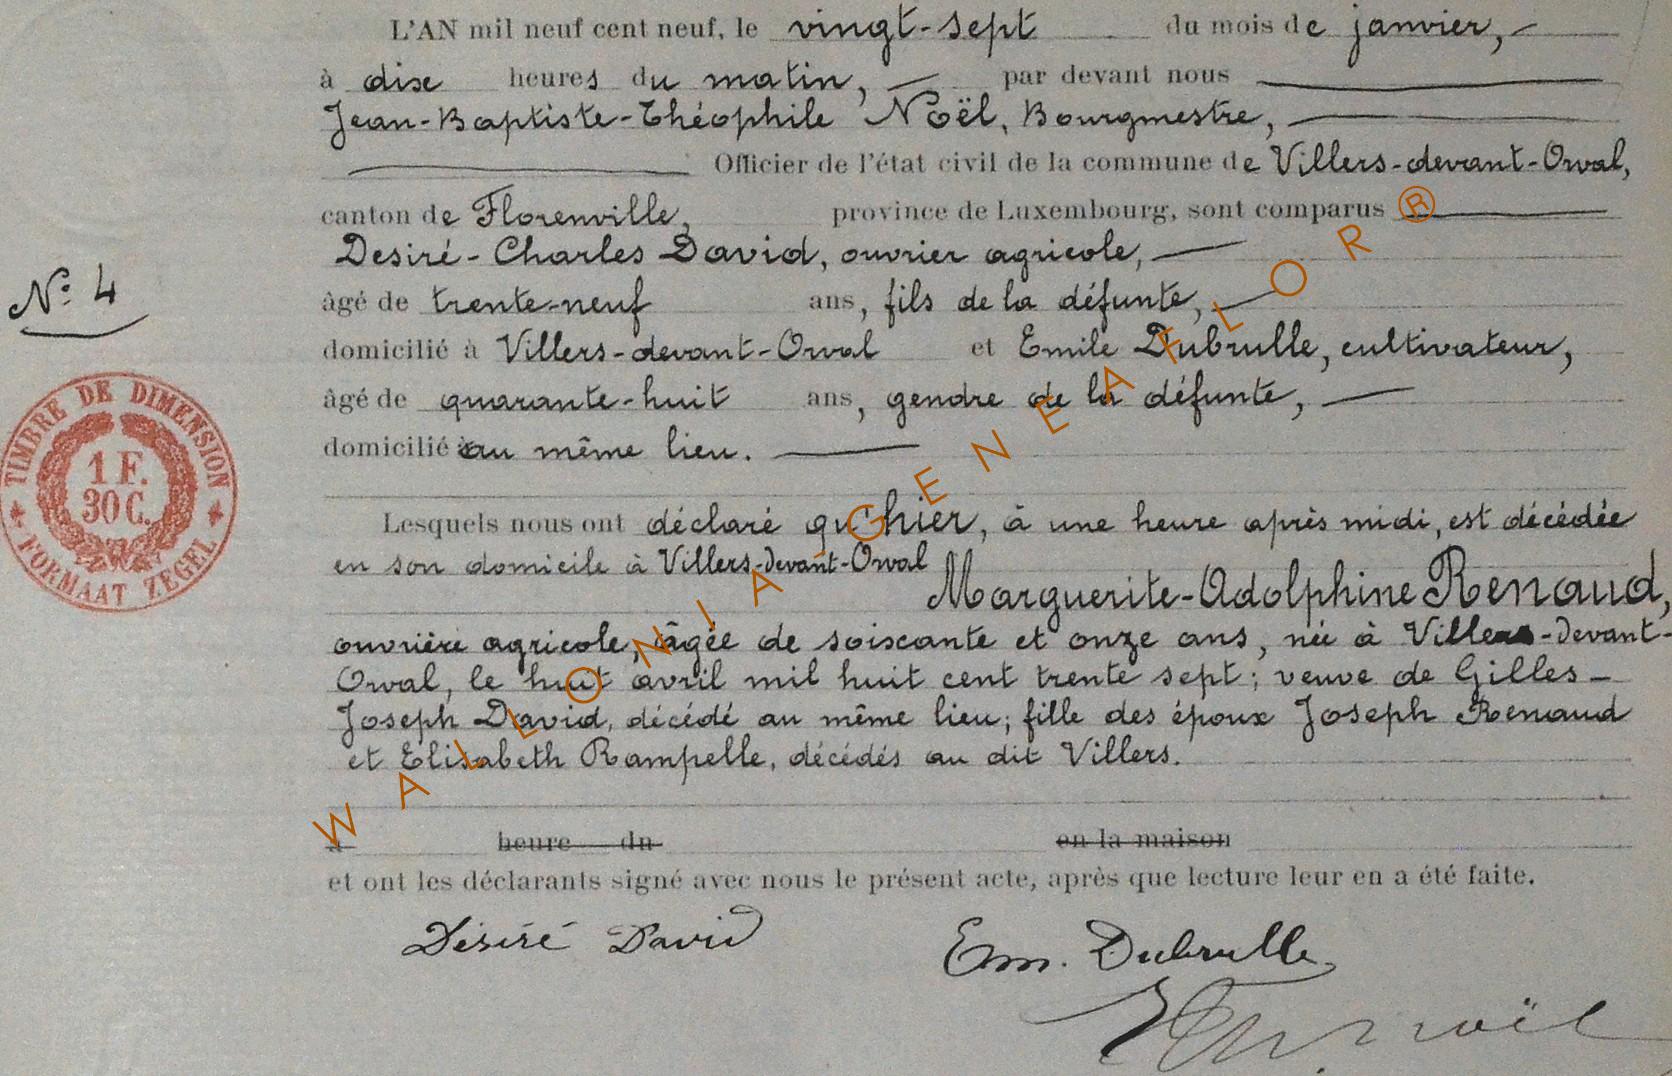 L'AN mil neuf cent neuf, le vingt-sept du mois de janvier,
à dix heures du matin, par devant nous
Jean-Baptiste-Théophile Noël, Bourgmestre,
Officier de l'état civil de la commune de Villers-devant-Orval,
canton de Florenville, province de Luxembourg, sont comparus
Desiré-Charles David, ouvrier agricole,
N° 4
âgé de trente-neuf ans, fils de la défunte,
domicilié à Villers-devant-Orval et Emile Dubrulle, cultivateur,
âgé de quarante-huit ans, gendre de la défunte,
domicilié au même lieu.
TIMBRE DE DIMENSION
1 F.
30 C.
FORMAAT ZEGEL
Lesquels nous ont déclaré qu'hier, à une heure après midi, est décédée
en son domicile à Villers-devant-Orval
Marguerite-Adolphine Renaud,
ouvrière agricole, âgée de soixante et onze ans, née à Villers-devant-
Orval, le huit avril mil huit cent trente sept; veuve de Gilles-
Joseph David, décédé au même lieu; fille des époux Joseph Renaud
et Elisabeth Rampelle, décédés au dit Villers.
à heure du en la maison
et ont les déclarants signé avec nous le présent acte, après que lecture leur en a été faite.
Désiré David
Em. Dubrulle
Noël
WALLONIA-GENEAFLOR®